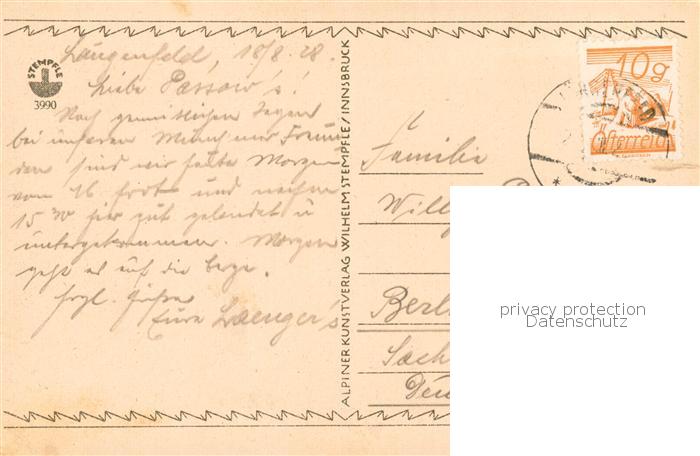 Längenfeld, 18/8.28.
STEMPFLE
3990
Liebe Passow's!
Nach gemütlichen Tagen
bei unseren Münchner Freun
den sind wir heute Morgen
von fort und
15 30 hier gut gelandet u
untergekommen. Morgen
geht es auf die Berge.
Hrzl. Grüße
Eure Laenger's
ALPINER KUNSTVERLAG WILHELM STEMPFLE / INNSBRUCK
10g
Österreich
Familie
Willy
Berl
Sach
Deu
privacy protection
Datenschutz